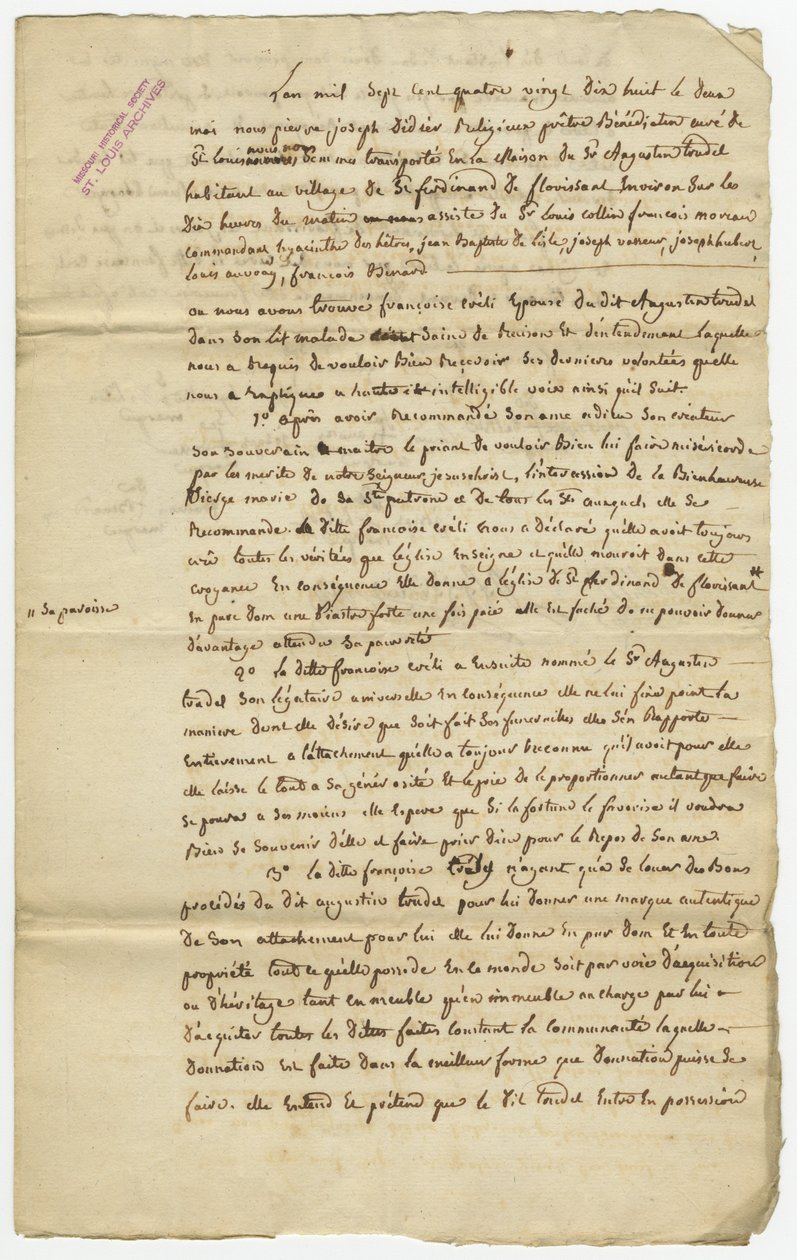 MISSOURI HISTORICAL SOCIETY
ST. LOUIS ARCHIVES
L'an mil Sept Cent quatre vingt Dix huit le Deux
mai nous pierre joseph Didier Religieux prêtre Bénédictin curé de
St. Louis nous nous somes transporté En La Maison du Sr. Augustin trudel
habitant au village De St. ferdinand De florissant Environ Sur les
Dix heures Du matin assisté du Sr. Louis Collin françois moreau
Commandant hyacinthe Deshêtres, jean Baptiste De Lisle, joseph vasseur, joseph hubert,
Louis auvray, françois Benard
ou nous avons trouvé françoise créli Epouse Du dit Augustin trudel
dans Son Lit malade Saine De Raison Et d'entendement Laquelle
nous a Requis De vouloir Bien Reçevoir Ses dernieres volontées quelle
nous a Expliqué a haute et intelligible voix ainsi qu'il Suit.
1.o après avoir Recommandé Son ame a dieu Son créateur
Son Souverain maitre le priant De vouloir Bien lui faire miséricorde
par les merite De notre Seigneur jesuschrist, l'intercession De La Bienheureuse
Vierge marie De Sa Ste. patrone et De tout les Sts. auxquels elle Se
Recommande. La Ditte françoise créli nous a Déclaré qu'elle avoit toujours
crû toutes les vérités que l'église Enseigne et quelle mouroit Dans cette
croyance En conséquence Elle Donne a l'église De St. ferdinand De florissant #
En pure Dom une Piastre forte une fois paié elle Est faché De ne pouvoir Donner
" Sa paroisse
D'avantage attendu Sa pauvreté
2o La ditte françoise créli a Ensuite nommé le Sr. Augustin
trudel Son Légataire universelle En conséquence elle ne lui fixe point La
maniere Dont elle Désire que Soit fait Ses funerailles elle S'en Rapporte
Entierement a l'attachement qu'elle a toujour Reconnu qu'il avoit pour elle
elle laisse le tout a Sa générosité Et le prie De le proportionner autant que faire
Se poura a Ses moiens elle Espere que Si La fortune le favorise il voudra
Bien Se Souvenir D'elle et faire prier Dieu pour le Repos De Son ame.
3o La ditte françoise crély n'ayant qu'a Se louer Des Bons
procédés Du Dit augustin trudel pour lui Donner une marque autentique
De Son attachement pour lui elle lui Donne En pur Dom Et En toute
propriété tout ce qu'elle possede En ce monde Soit par voie D'acquisition
ou D'héritage tant En meuble qu'en immeuble a charge par lui
D'acquiter toutes les Dettes faites Constant La Communauté Laquelle
Donnation Est faite Dans La meilleur forme que Donnation puisse Se
faire. elle Entend Et prétend que le Dit trudel Entre En possession